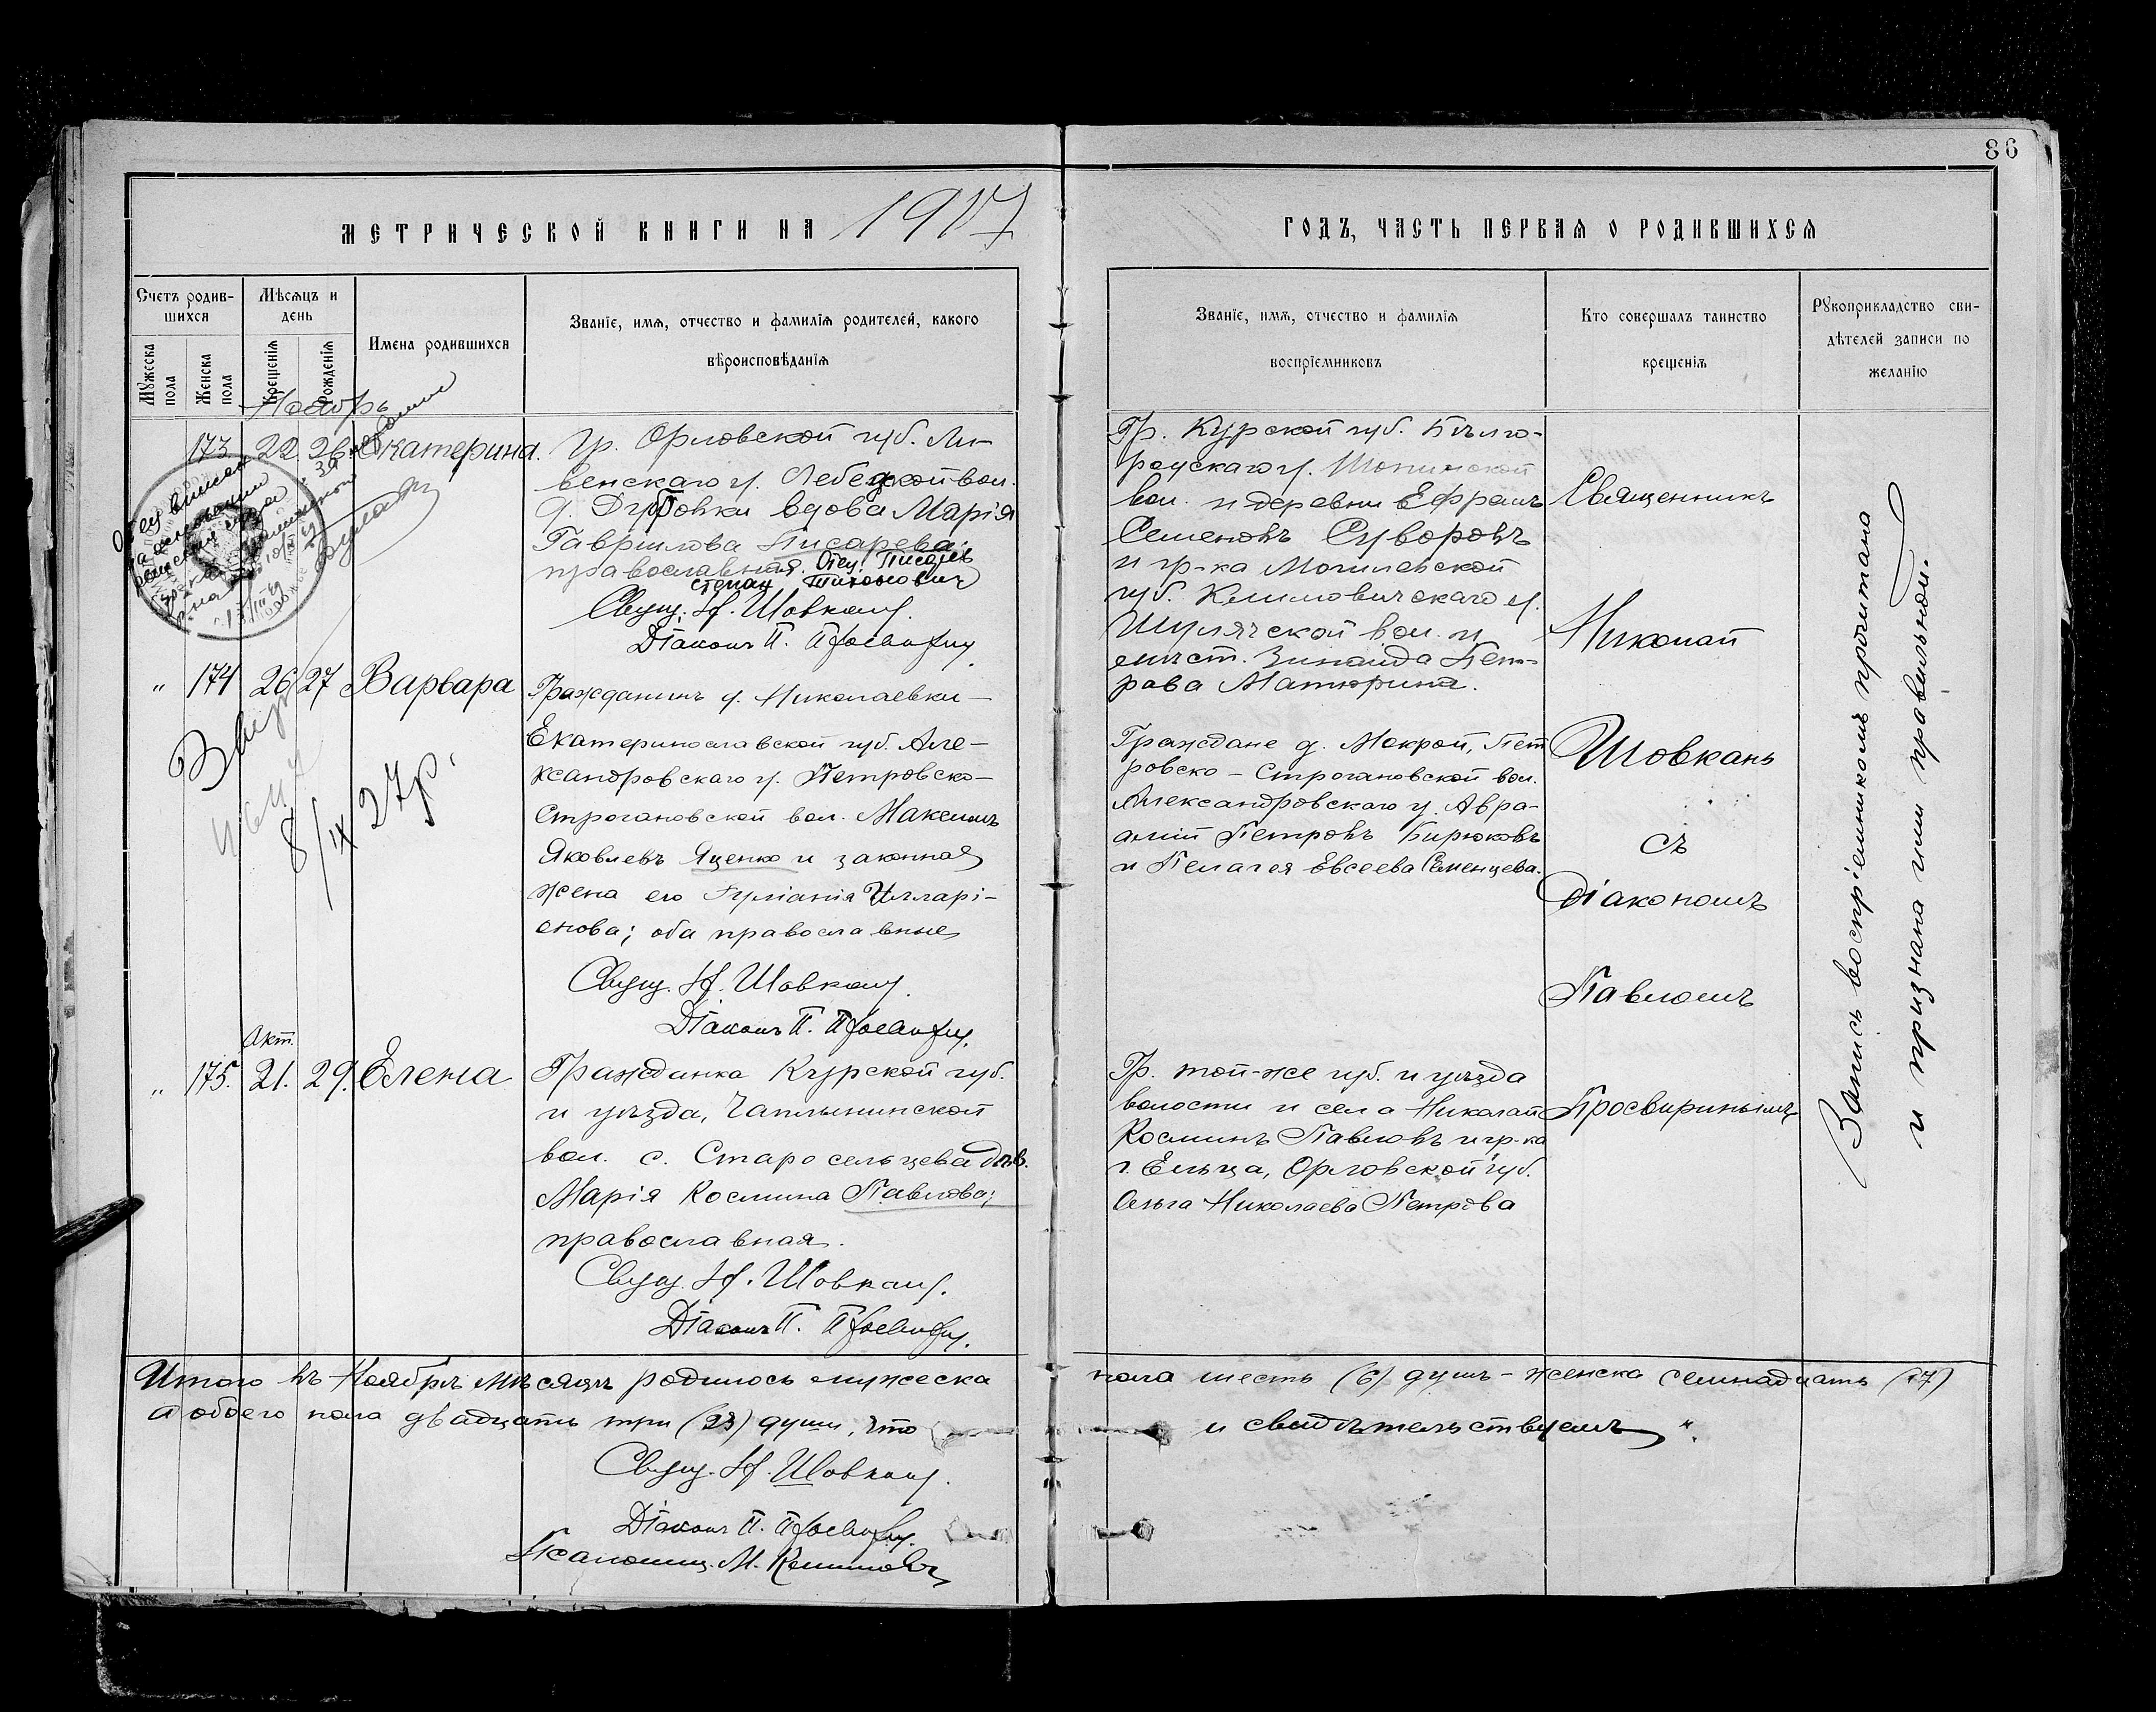 86
МЕТРИЧЕСКОЙ КНИГИ НА 1917
ГОДЪ, ЧАСТЬ ПЕРВАЯ О РОДИВШИХСЯ
Счетъ родив-
шихся
Мужеска пола
Женска пола
Мѣсяцъ и
день
Крещенія
Рожденія
Имена родившихся
Званіе, имя, отчество и фамилія родителей, какого
вѣроисповѣданія
Званіе, имя, отчество и фамилія
воспріемниковъ
Кто совершалъ таинство
крещенія
Рукоприкладство сви-
дѣтелей записи по
желанію
Ноябрь
173 22 26 Екатерина.
Гр. Орловской губ. Ли-
венскаго у. Лебедской вол.
д. Дубовки вдова Марія
Гаврилова Писарева;
православная. Отец Писарев
Степан Тихонович
Свящ. Н. Шовкань.
Діаконъ П. Просвиринъ
Гр. Курской губ. Бѣлго-
родскаго у. Шопинской
вол. и деревни Ефремъ
Семеновъ Суворовъ
и гр-ка Могилевской
губ. Климовичскаго у.
вол. и
Зинаида Пет-
рова Матюрина.
Отец вписан
на основании
решения суда
" 174 26 27 Варвара
Гражданинъ д. Николаевки
Екатеринославской губ. Але-
ксандровскаго у. Петровско-
Строгановской вол. Максимъ
Яковлевъ Яценко и законная
жена его Илларі-
онова; оба православные
Свящ. Н. Шовкань.
Діаконъ П. Просвиринъ.
Граждане д. Мокрой, Пет
ровско-Строгановской вол.
Александровскаго у. Авра-
амій Петровъ Бирюковъ
и Пелагея Евсеева Семенцева.
27р.
Окт.
" 175. 21. 29. Елена
Гражданка Курской губ.
и уѣзда, Чаплыгинской
вол. с. Старосельцева дѣв.
Марія Косьмина Павлова;
православная.
Свящ. Н. Шовкань.
Діаконъ П. Просвиринъ.
Гр. той-же губ. и уѣзда
волости и села Николай
Косминъ Павловъ и гр-ка
г. Ельца, Орловской губ.
Ольга Николаева Петрова
Священникъ
Николай
Шовкань
съ
діакономъ
Павломъ
Просвиринымъ
Запись воспріемникомъ прочитана
и признана ими правильной.
Итого въ Ноябрѣ мѣсяцѣ родилось мужеска пола шесть (6) душъ - женска семнадцать (17)
а обоего пола двадцать три (23) души, что и свидѣтельствуемъ
Свящ. Н. Шовкань.
Діаконъ П. Просвиринъ.
Псаломщ. М. Климовъ